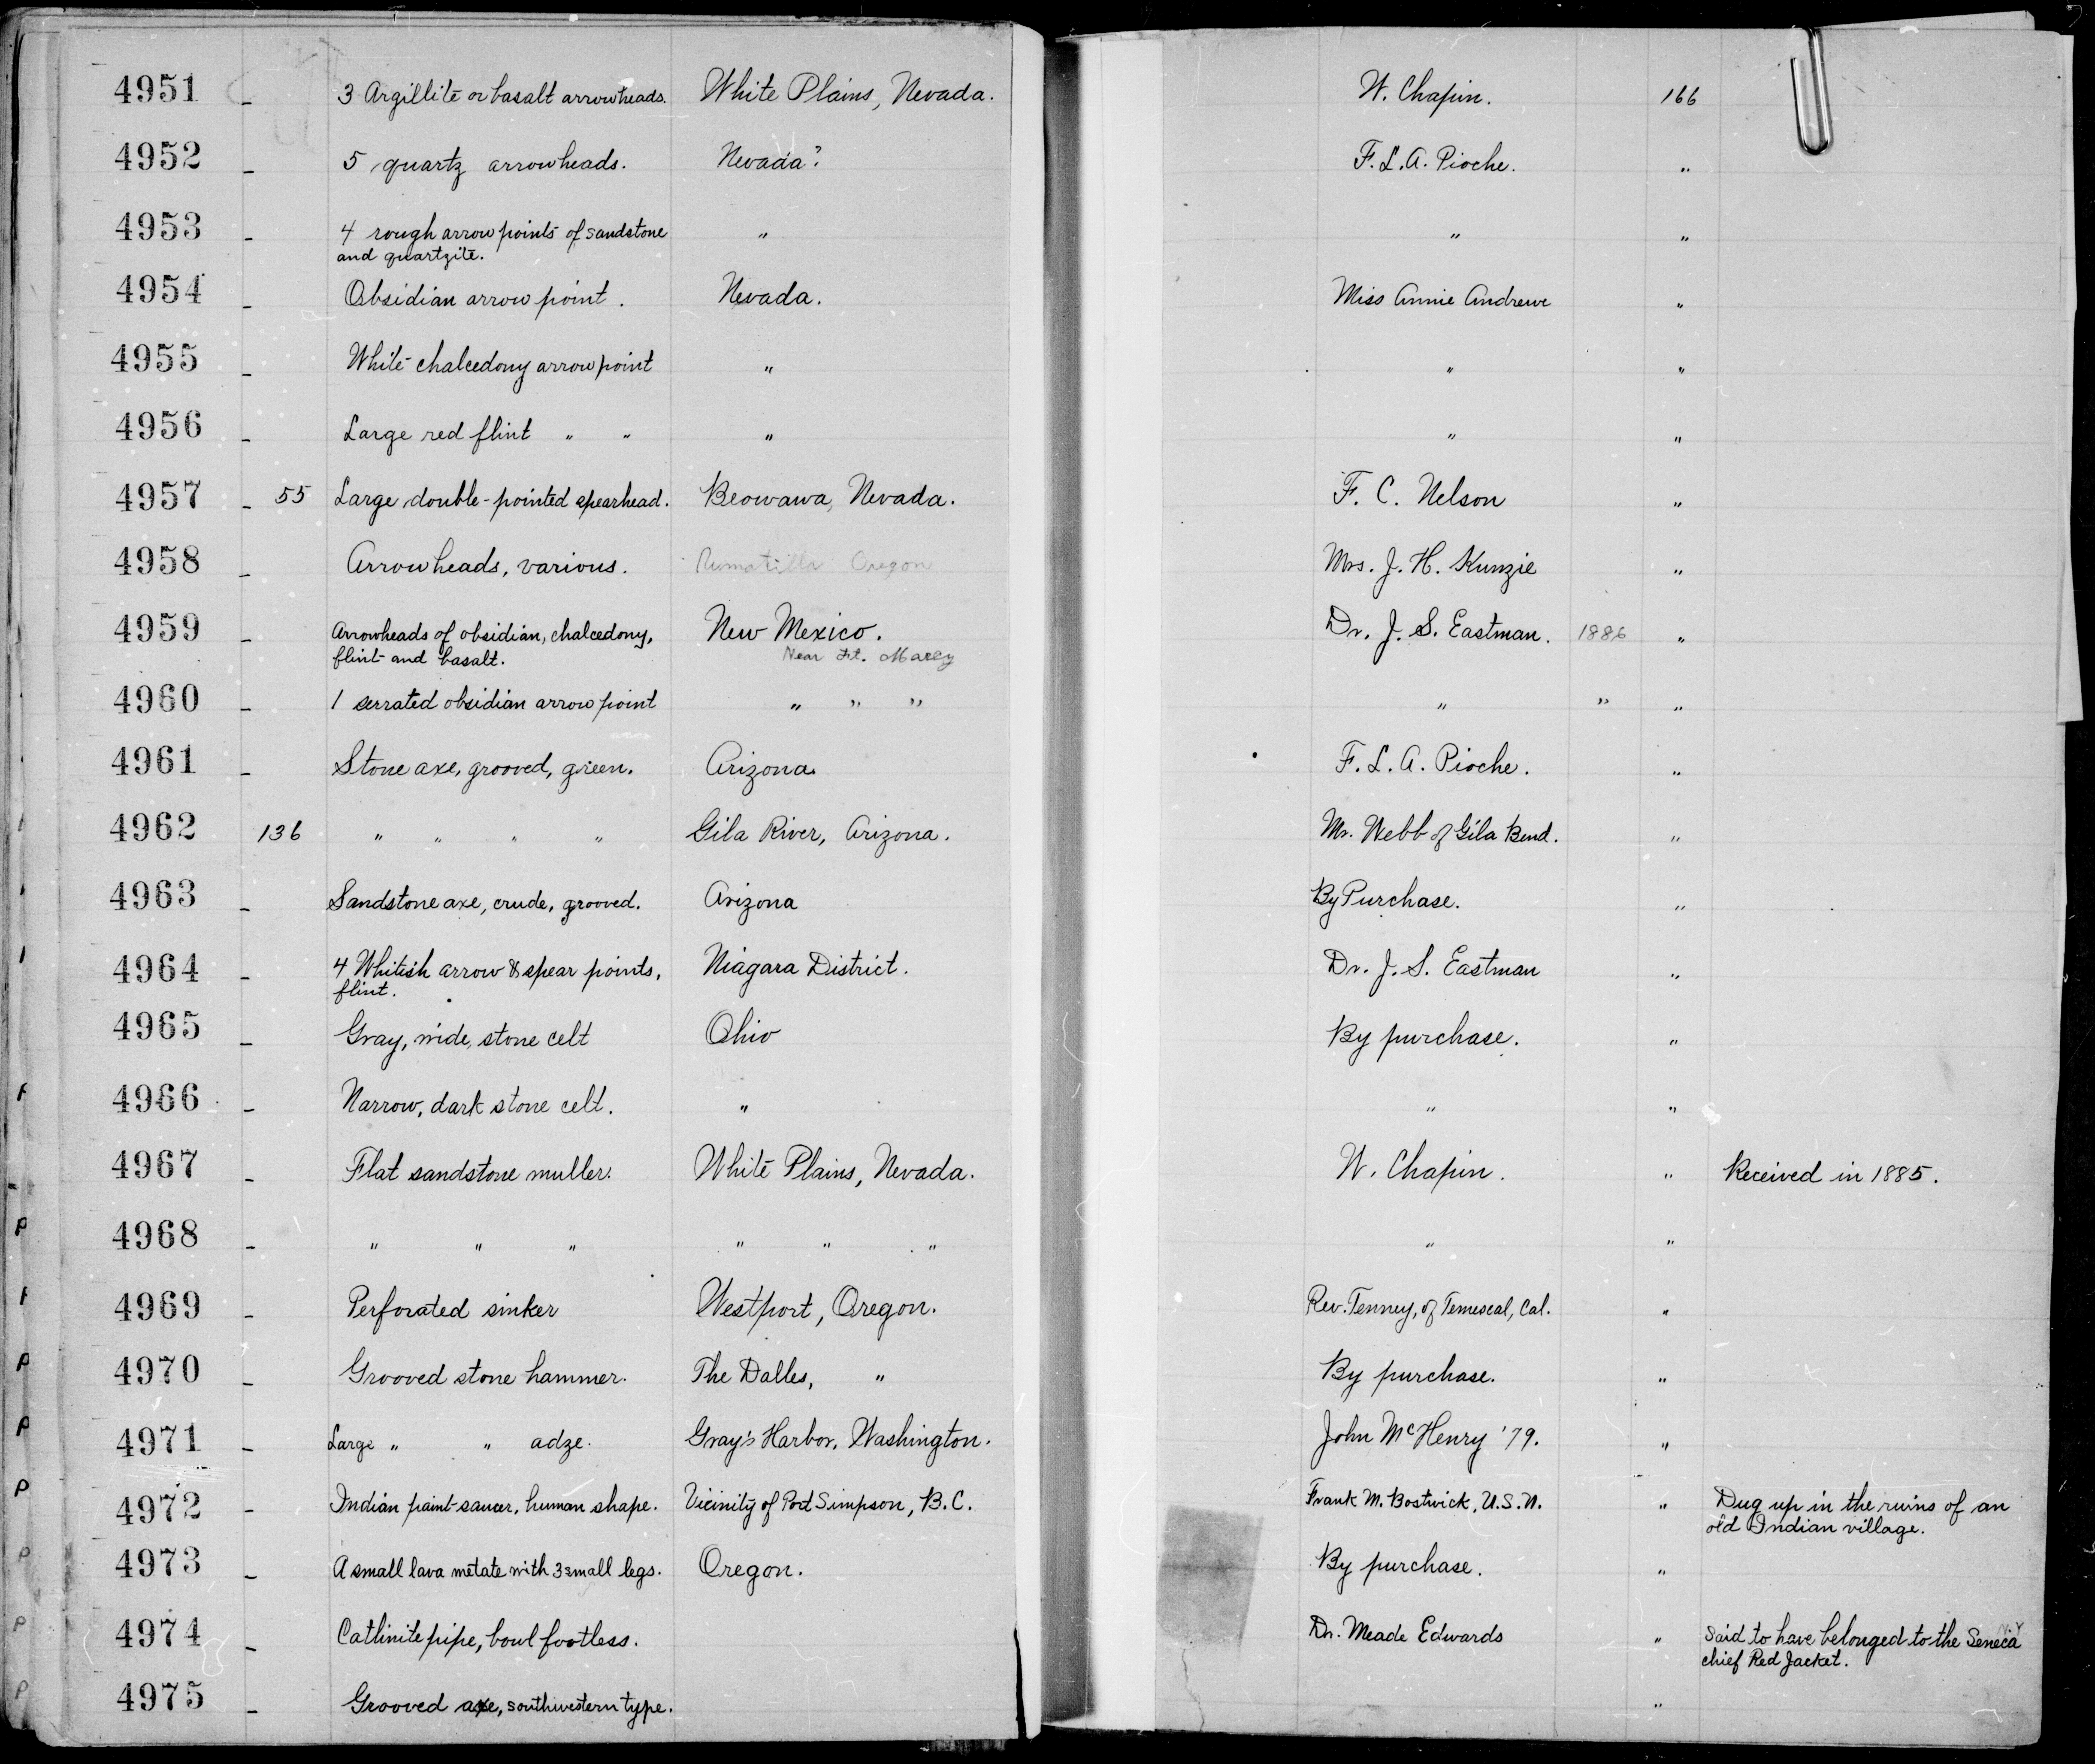 4951 - 3 Argillite or basalt arrowheads. White Plains, Nevada. W. Chapin. 166
4952 - 5 quartz arrowheads. Nevada? F. L. A. Pioche. "
4953 - 4 rough arrow points of sandstone " " "
and quartzite.
4954 - Obsidian arrow point. Nevada. Miss Annie Andrews "
4955 - White chalcedony arrow point " " "
4956 - Large red flint " " " " "
4957 - 55 Large double-pointed spearhead. Beowawa, Nevada. F. C. Nelson "
4958 - Arrowheads, various. Oregon Mrs. J. H. Kunzie "
4959 - Arrowheads of obsidian, chalcedony, New Mexico. Dr. J. S. Eastman. 1886 "
flint and basalt. Near Ft. Marcy
4960 - 1 serrated obsidian arrow point " " " " " "
4961 - Stone axe, grooved, green. Arizona. F. L. A. Pioche. "
4962 136 " " " " Gila River, Arizona. Mr. Webb of Gila Bend. "
4963 - Sandstone axe, crude, grooved. Arizona By Purchase. "
4964 - 4 Whitish arrow & spear points, Niagara District. Dr. J. S. Eastman "
flint.
4965 - Gray, wide, stone celt Ohio By purchase. "
4966 - Narrow, dark stone celt. " " "
4967 - Flat sandstone muller. White Plains, Nevada. W. Chapin. " Received in 1885.
4968 - " " " " " " " "
4969 - Perforated sinker Westport, Oregon. Rev. Tenney, of Temescal, Cal. "
4970 - Grooved stone hammer. The Dalles, " By purchase. "
4971 - Large " " adze. Gray's Harbor, Washington. John McHenry '79. "
4972 - Indian paint-saucer, human shape. Vicinity of Port Simpson, B.C. Frank M. Bostwick, U.S.N. " Dug up in the ruins of an
old Indian village.
4973 - A small lava metate with 3 small legs. Oregon. By purchase. "
4974 - Catlinite pipe, bowl footless. Dr. Meade Edwards " Said to have belonged to the Seneca N.Y
chief Red Jacket.
4975 - Grooved axe, southwestern type. "